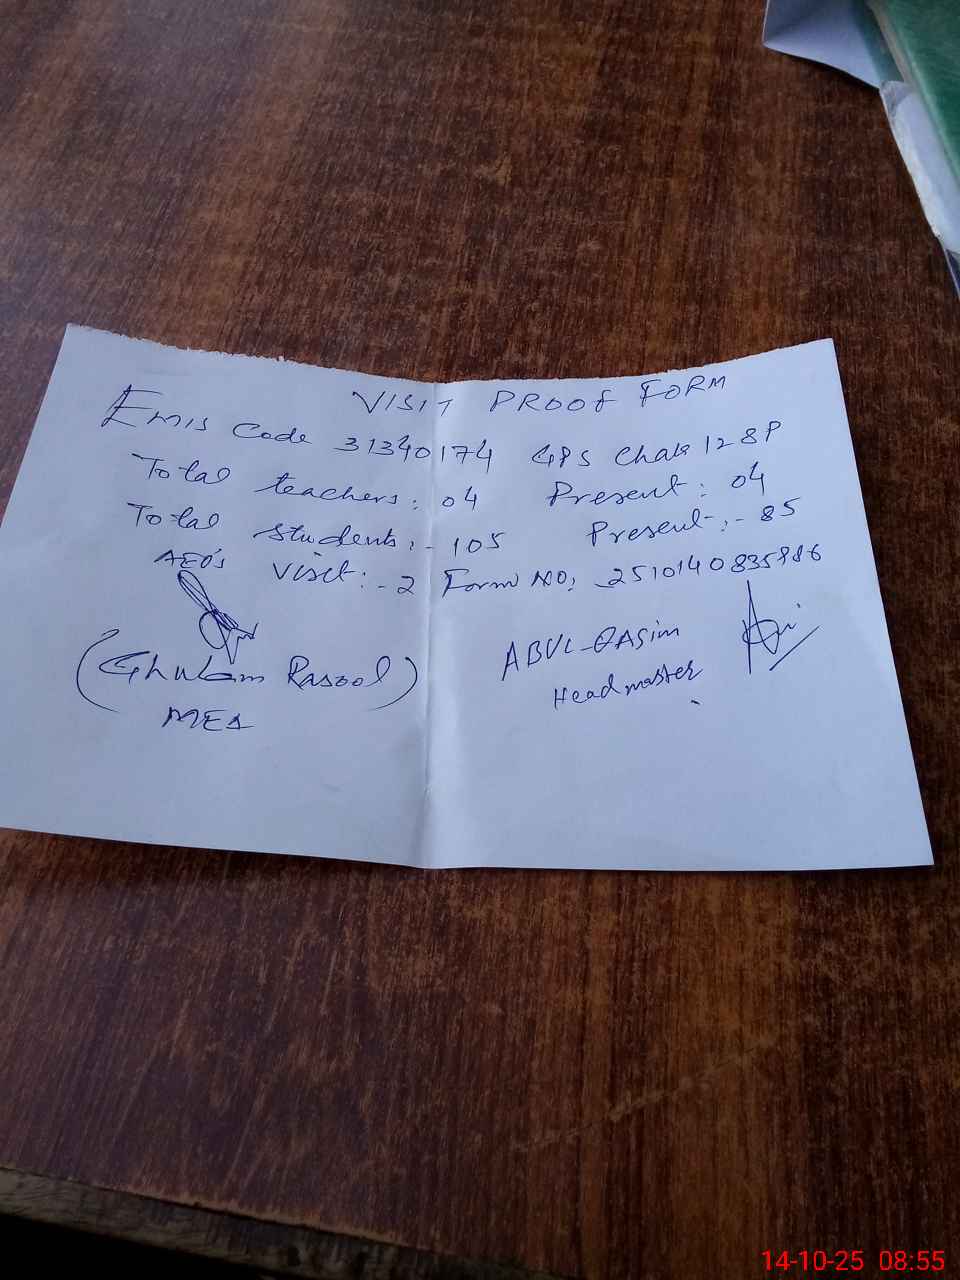 VISIT PROOF FORM
EMIS Code 31340174 GPS Chak 128P
Total teachers: 04 Present: 04
Total students:- 105 Present:- 85
AEO's Visit:- 2 Form NO: 2510140835986
(Ghulam Rasool) ABUL-QASim
MEA Headmaster
14-10-25 08:55